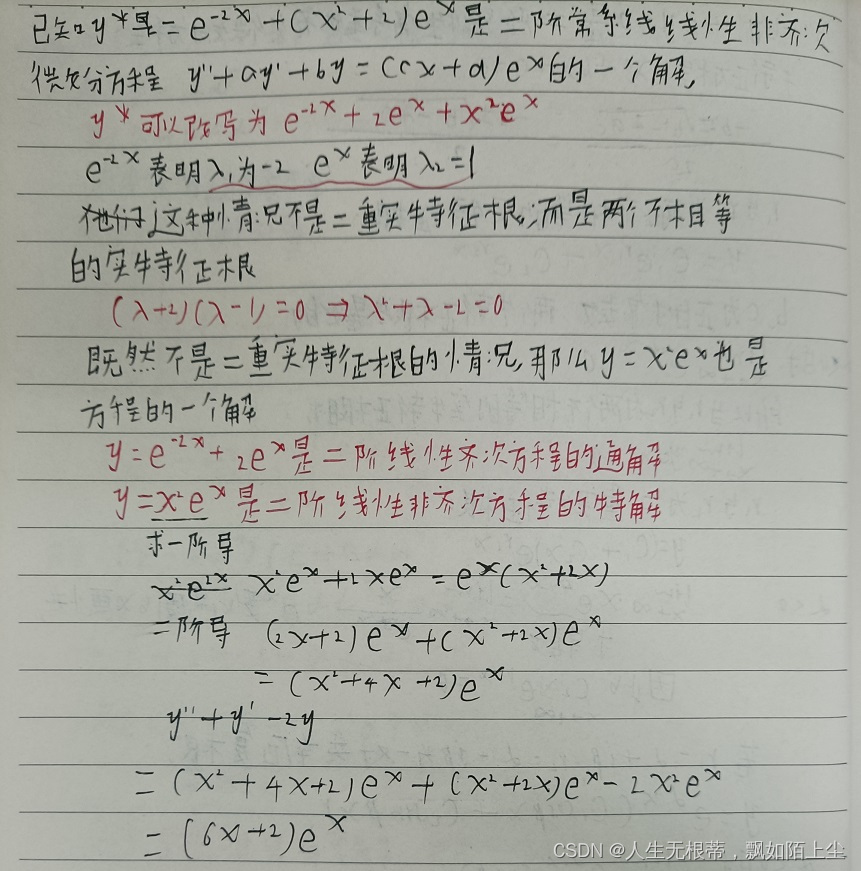 已知y*是=e^{-2x}+(x²+2)e^x是二阶常系线线性非齐次
微分方程 y''+ay'+by=(cx+d)e^x的一个解,
y*可以改写为 e^{-2x}+2e^x+x²e^x
e^{-2x}表明λ₁为-2 e^x表明λ₂=1
这种情况不是二重实特征根,而是两个不相等
的实特征根
(λ+2)(λ-1)=0 ⇒ λ²+λ-2=0
既然不是二重实特征根的情况,那么y=x²e^x也是
方程的一个解
y=e^{-2x}+2e^x是二阶线性齐次方程的通解
y=x²e^x是二阶线性非齐次方程的特解
求一阶导
x²e^{2x} x²e^x+2xe^x=e^x(x²+2x)
二阶导 (2x+2)e^x+(x²+2x)e^x
=(x²+4x+2)e^x
y''+y'-2y
=(x²+4x+2)e^x+(x²+2x)e^x-2x²e^x
=(6x+2)e^x
CSDN @人生无根蒂，飘如陌上尘